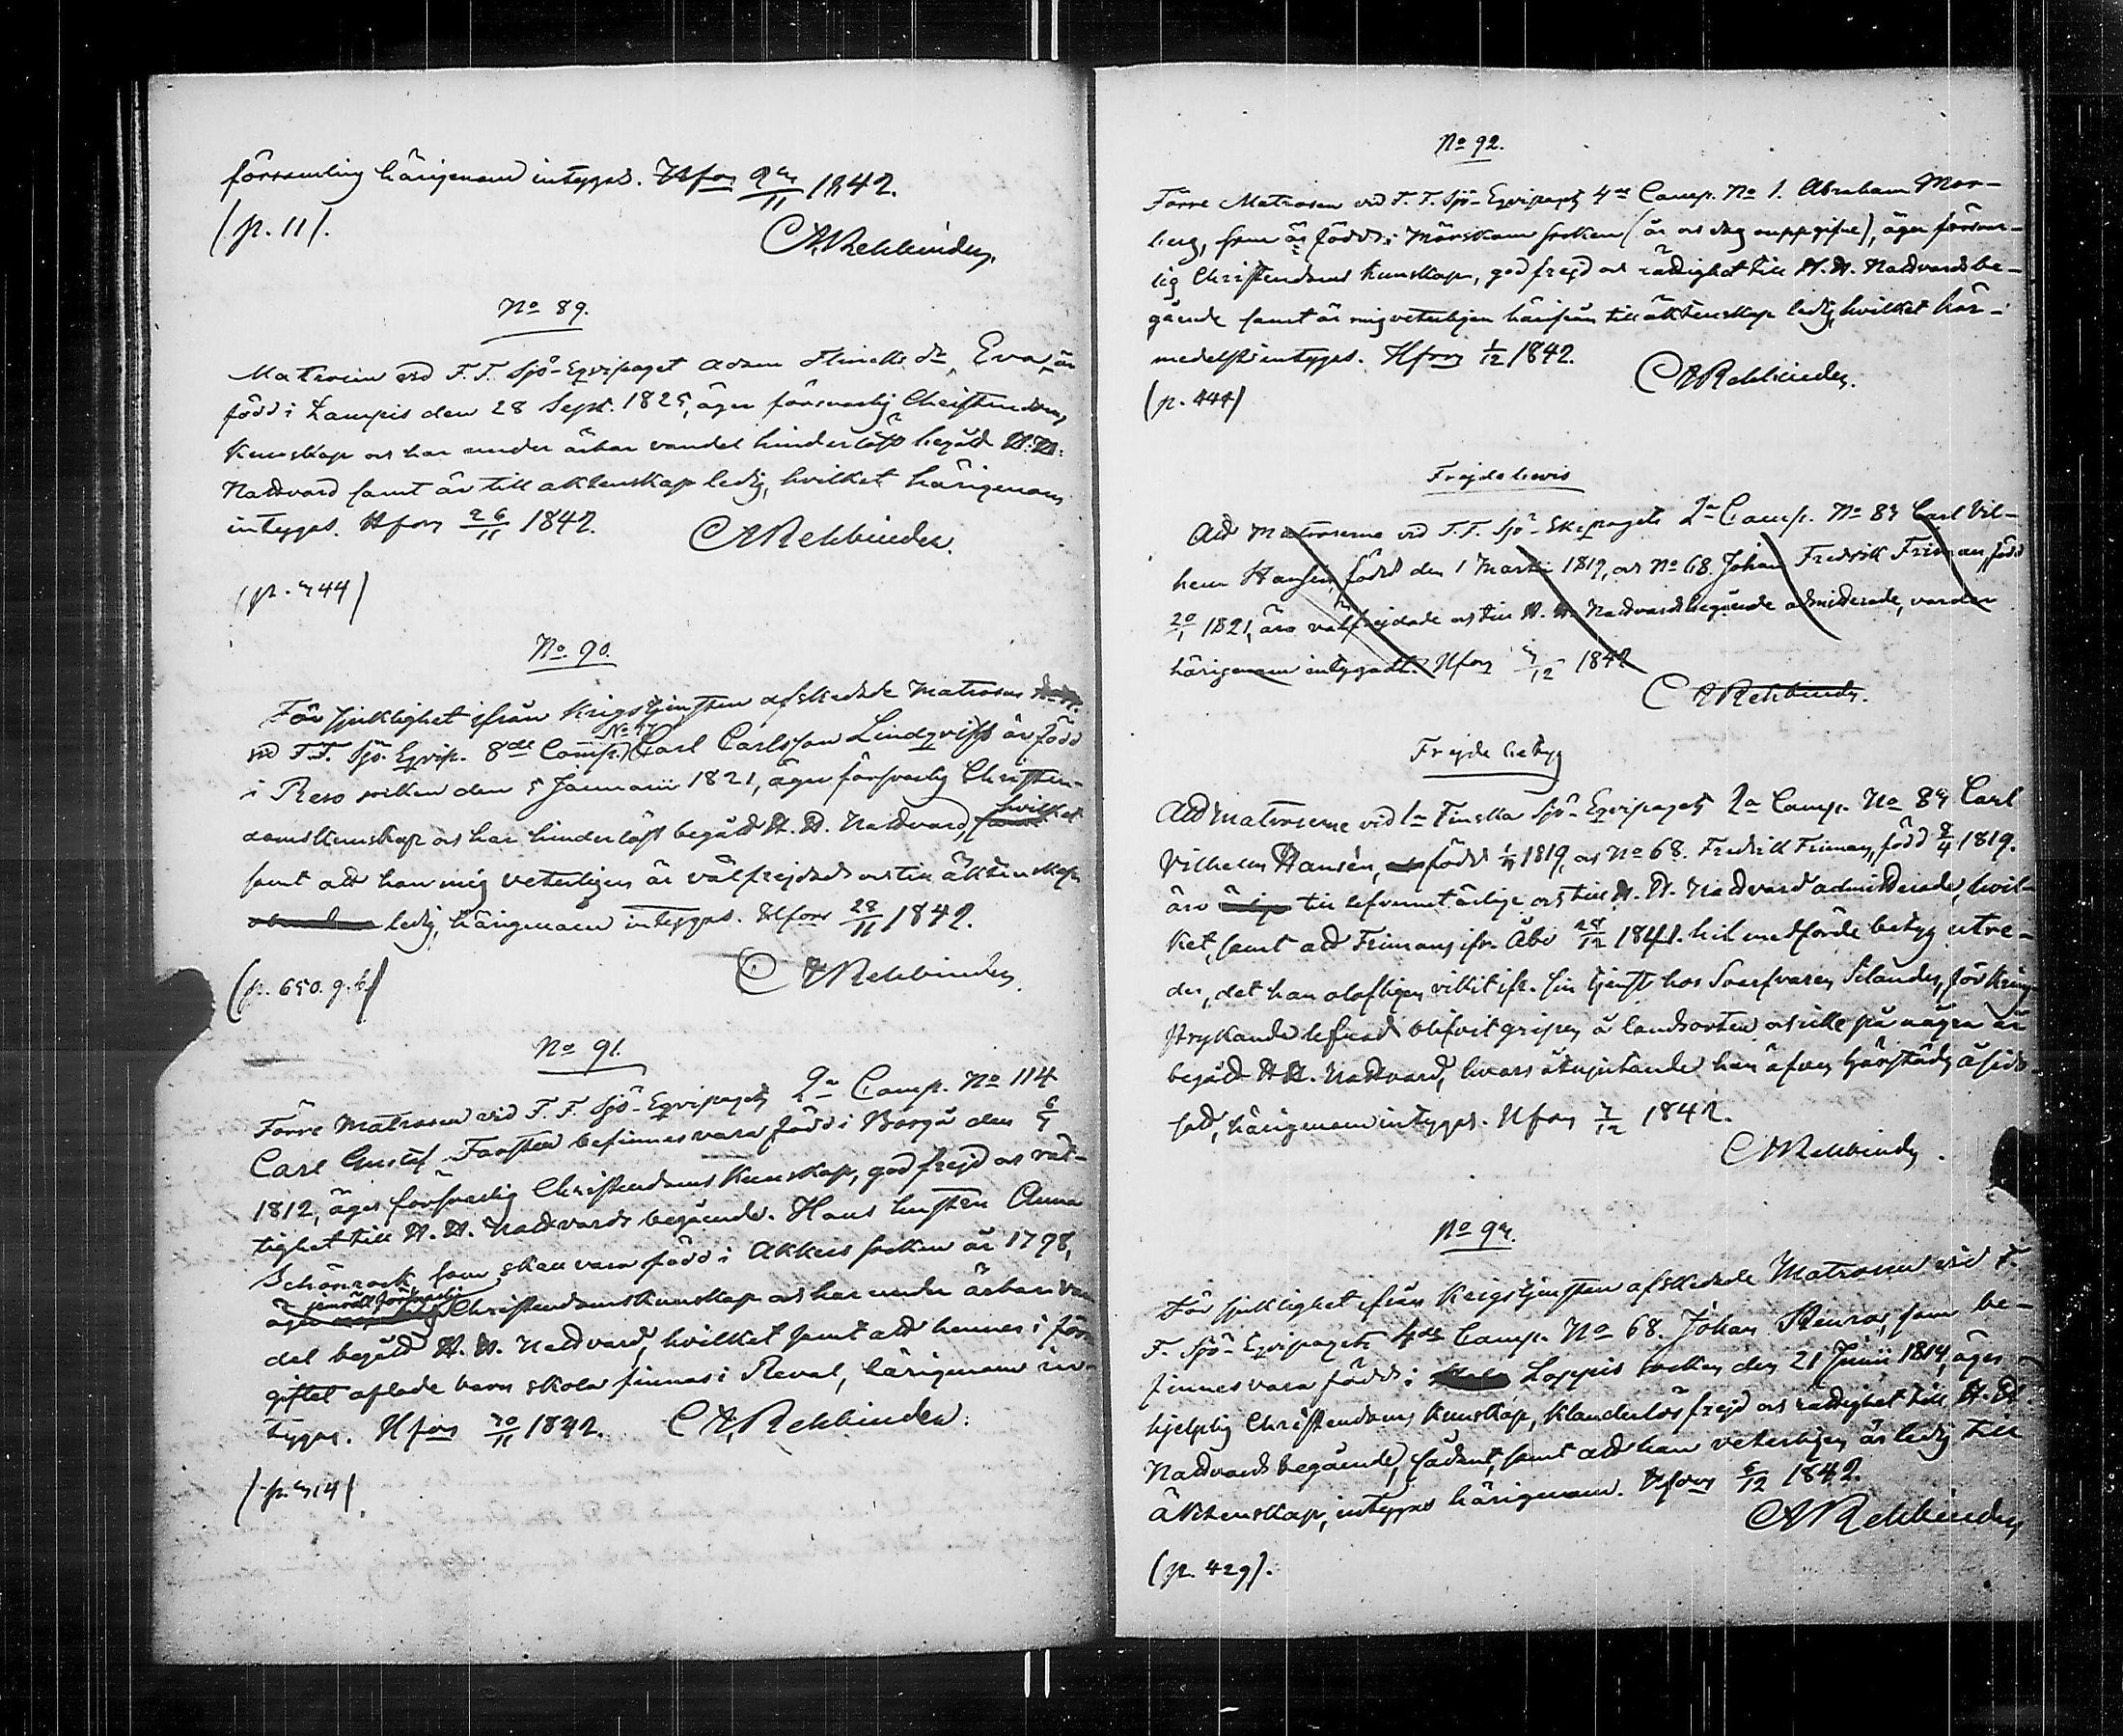 församling härigenom intygas. Hfors 1842.
(p. 11).
CARehbinder.
No 89.
Matrosen vid F. F. Sjö-Eqvipaget Adam Flincks dr, Eva, är
född i Lampis den 28 Sept. 1825, äger försvarlig Christendoms
kunskap och har under ärbar vandel hinderlöst begått H. H.
Nattvard samt är till äktenskap ledig, hvilket härigenom
intygas. Hfors 26/11 1842. CARehbinder.
(p. 344)
No 90.
För sjuklighet ifrån Krigstjensten afskedade Matrosen
No 17
vid F. F. Sjö-Eqvip. 8de Comp. Carl Carlsson Lindqvist är född
i Reso socken den 5 Januarii 1821, äger försvarlig Christen-
domskunskap och har hinderlöst begått H. H. Nattvard, hvilket
samt att han mig veterligen är välfrejdad och till äktenskap
ledig, härigenom intygas. Hfors 28/11 1842.
(p. 650. g. b.) CARehbinder.
No 91.
Förre Matrosen vid F. F. Sjö-Eqvipagets 2a Comp. No 114
Carl Gustaf Forsten befinnes vara född i Borgå den
1812, äger försvarlig Christendoms kunskap, god frejd och rät-
tighet till H. H. Nattvards begående. Hans hustru Anna
Schönrock som skall vara född i Akkus socken år 1798,
jemväl försvarlig
äger Christendomskunskap och har under ärbar van-
del begått H. H. Nattvard, hvilket samt att hennes i för
giftet aflade barn skola finnas i Reval, härigenom in-
tygas. Hfors 30/11 1842. CARehbinder.
(p. 314).
No 92.
Förre Matrosen vid F. F. Sjö-Eqvipagets 4de Comp. No 1. Abraham Mor-
berg, som är född i Mörskom socken (år och dag ouppgifne), äger försvar-
lig Christendoms kunskap, god frejd och rättighet till H. H. Nattvards be-
gående samt är mig veterligen härifrån till äktenskap ledig, hvilket här-
medelst intygas. Hfors 1/12 1842.
CARehbinder.
(p. 444)
Frejdebevis
Att Matroserne vid F. F. Sjö-Ekipagets 2a Comp. No 83 Carl Vil-
hem Hansen, född den 1 Martii 1819, och No 68. Johan Fredrik Friman född
20/1 1821, äro välfrejdade och till H. H. Nattvards begående admitterade, varder
härigenom intygadt. Hfors 3/12 1842
CARehbinder.
Frejde betyg
Att matroserne vid 1a Finska Sjö-Eqvipagets 2a Comp. No 83 Carl
Vilhelm Hansén, född 1/3 1819, och No 68. Fredrik Friman, född 8/4 1819.
äro till lefvernet ärlige och till H. H. Nattvard admitterade, hvil-
ket, samt att Frimans ifr. Åbo 28/12 1841. hit medförde betyg utvi-
der, det han olofligen vikit ifr. sin tjenst hos Svarfvaren Silander, för kring
strykande lefnad blifvit gripen å landsorten och icke på några år
begått H. H. Nattvard, hvars åtnjutande han äfven härstädes åsido-
satt, härigenom intygas. Hfors 7/12 1842.
CARehbinder.
No 93.
För sjuklighet ifrån Krigstjensten afskedade Matrosen vid F.
F. Sjö-Eqvipagets 4de Comp. No 68. Johan Stenros, som be-
finnes vara född i Loppis socken den 21 Junii 1814, äger
hjelplig Christendoms kunskap, klanderlös frejd och rättighet till H. H.
Nattvards begående, sådant, samt att han veterligen är ledig till
äktenskap, intygas härigenom. Hfors 6/12 1842.
CARehbinder
(p. 429).